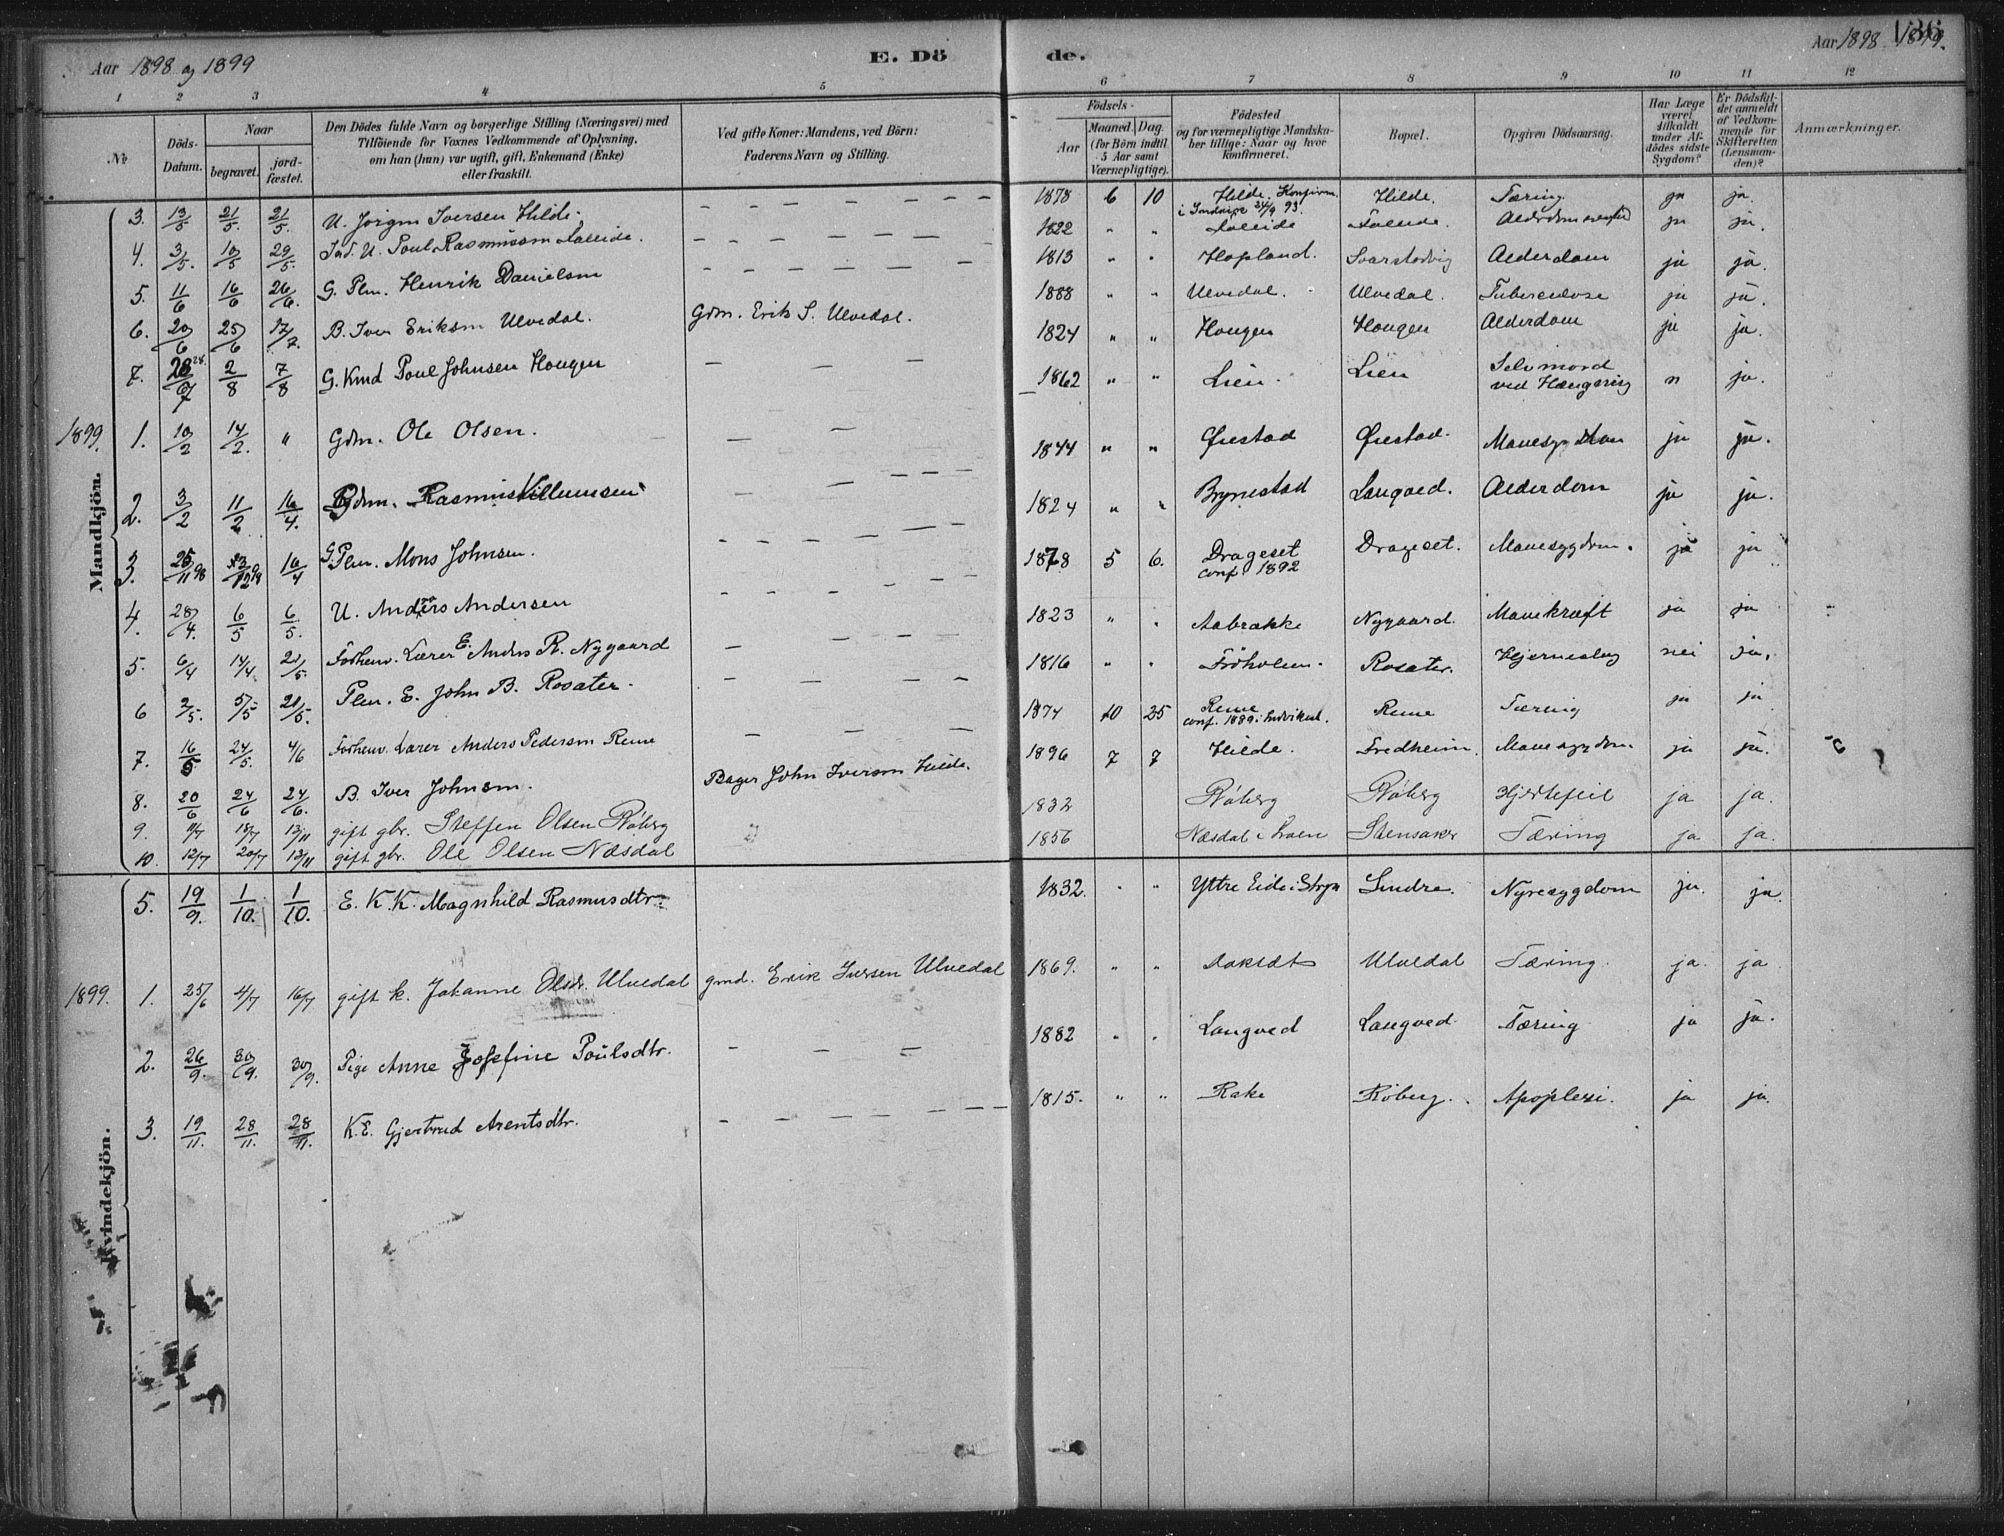 Aar 1898 og 1899
E. Dö
de.
Aar 1898 1899.
136
1 2 3 4 5 6 7 8 9 10 11 12
No
Döds-Datum.
Naar
begravet.
jord-fæstet.
Den Dödes fulde Navn og borgerlige Stilling (Næringsvei) med
Tilföiende for Voxnes Vedkommende af Oplysning,
om han (hun) var ugift, gift, Enkemand (Enke)
eller fraskilt.
Ved gifte Koner: Mandens, ved Börn:
Faderens Navn og Stilling.
Födsels-
Aar
Maaned. Dag.
(for Börn indtil
5 Aar samt
Værnepligtige).
Födested
og for værnepligtige Mandska-
ber tillige: Naar og hvor
konfirmeret.
Bopæl.
Opgiven Dödsaarsag.
Har Læge
været
tilkaldt
under Af-
dödes sidste
Sygdom?
Er Dödsfal-
det anmeldt
af Vedkom-
mende for
Skifteretten
(Lensman-
den)?
Anmærkninger.
Mandkjön.
3. 13/5 21/5 21/5 U. Jörgen Iversen Hilde. 1878 6 10 Hilde, Konfirm. i Indvik 24/9 93. Hilde. Tæring. ja ja.
4. 3/5 10/5 29/5 Ind. U. Poul Rasmussen Faleide. 1822 " " Faleide Faleide. Alderdom ja ja.
5. 11/6 16/6 26/6. G. Plm. Henrik Danielsen 1813 " " Hopland. Svarstadvig Alderdom ja ja.
6. 20/6 25/6 17/7. B. Iver Eriksen Ulvedal. Gdm. Erik S. Ulvedal. 1888 " " Ulvedal. Ulvedal. Tuberculose ja ja.
7. 28/7 2/8 7/8 G. Kmd Poul Johnsen Hougen 1824 " " Hougen Hougen Alderdom ja ja.
1899. 1. 10/2 14/2. " Gdm. Ole Olsen. 1862 " " Lien. Lien Selvmord ved Hængning n ja.
2. 3/2 11/2 16/4. Gdm. Rasmus Villumsen 1844 " " Øvestad Øvestad. Mavesygdom ja ja.
3. 25/11 98 16/4 G. Plm. Mons Johnsen. 1824 " " Brynestad Langved. Alderdom ja ja.
4. 28/4. 6/5 6/5. U. Anders Andersen 1878 5 6. Drageset conf. 1892 Drageset. Mavesygdom. ja ja
5. 6/4 14/4 21/5 Forhenv. Lærer E. Anders R. Nygaard 1823 " " Aabrække Nygaard. Mavekræft ja ja
6 2/5. 5/5 21/5. Plm. E. John B. Rosæter. 1816 " " Frøholm. Rosæter. Hjerneslag nei ja.
7. 16/5 24/5. 4/6 Forhenv. Lærer Anders Pedersen Reme 1874 10 25 Reme conf. 1889 i Indvik. Reme Tæring ja ja
8. 20/6 24/6 24/6. B. Iver Johnsen. Bager John Iversen Hilde. 1896 7 7 Hilde. Fredheim. Mavesygdom. ja ja.
9. 11/7 18/7 13/11 gift gbr. Steffen Olsen Röberg 1832 Röberg Röberg Hjertefeil ja ja.
10. 12/7 20/7 13/11 gift gbr. Ole Olsen Næsdal 1856 Næsdal i Loen Stensaker Tæring ja ja.
Kvindekjön.
5. 19/9. 1/10. 1/10. E. K. K. Magnhild Rasmusdtr. 1832. " " Yttre Eide i Stryn Sindre. Nyresygdom ja. ja.
1899. 1. 25/6 4/7 16/7 gift k. Johanne Olsdr. Ulvedal gmd. Erik Iversen Ulvedal 1869. " " Ulvedal Tæring. ja. ja
2. 26/9. 30/9. 30/9. Pige Anne Josefine Poulsdtr. 1882 " " Langved Langved Tæring ja ja.
3. 19/11. 28/11. 28/11. K. E. Gjertrud Arentsdtr. 1815. " " Rake Röberg. Apoplexi. ja ja.